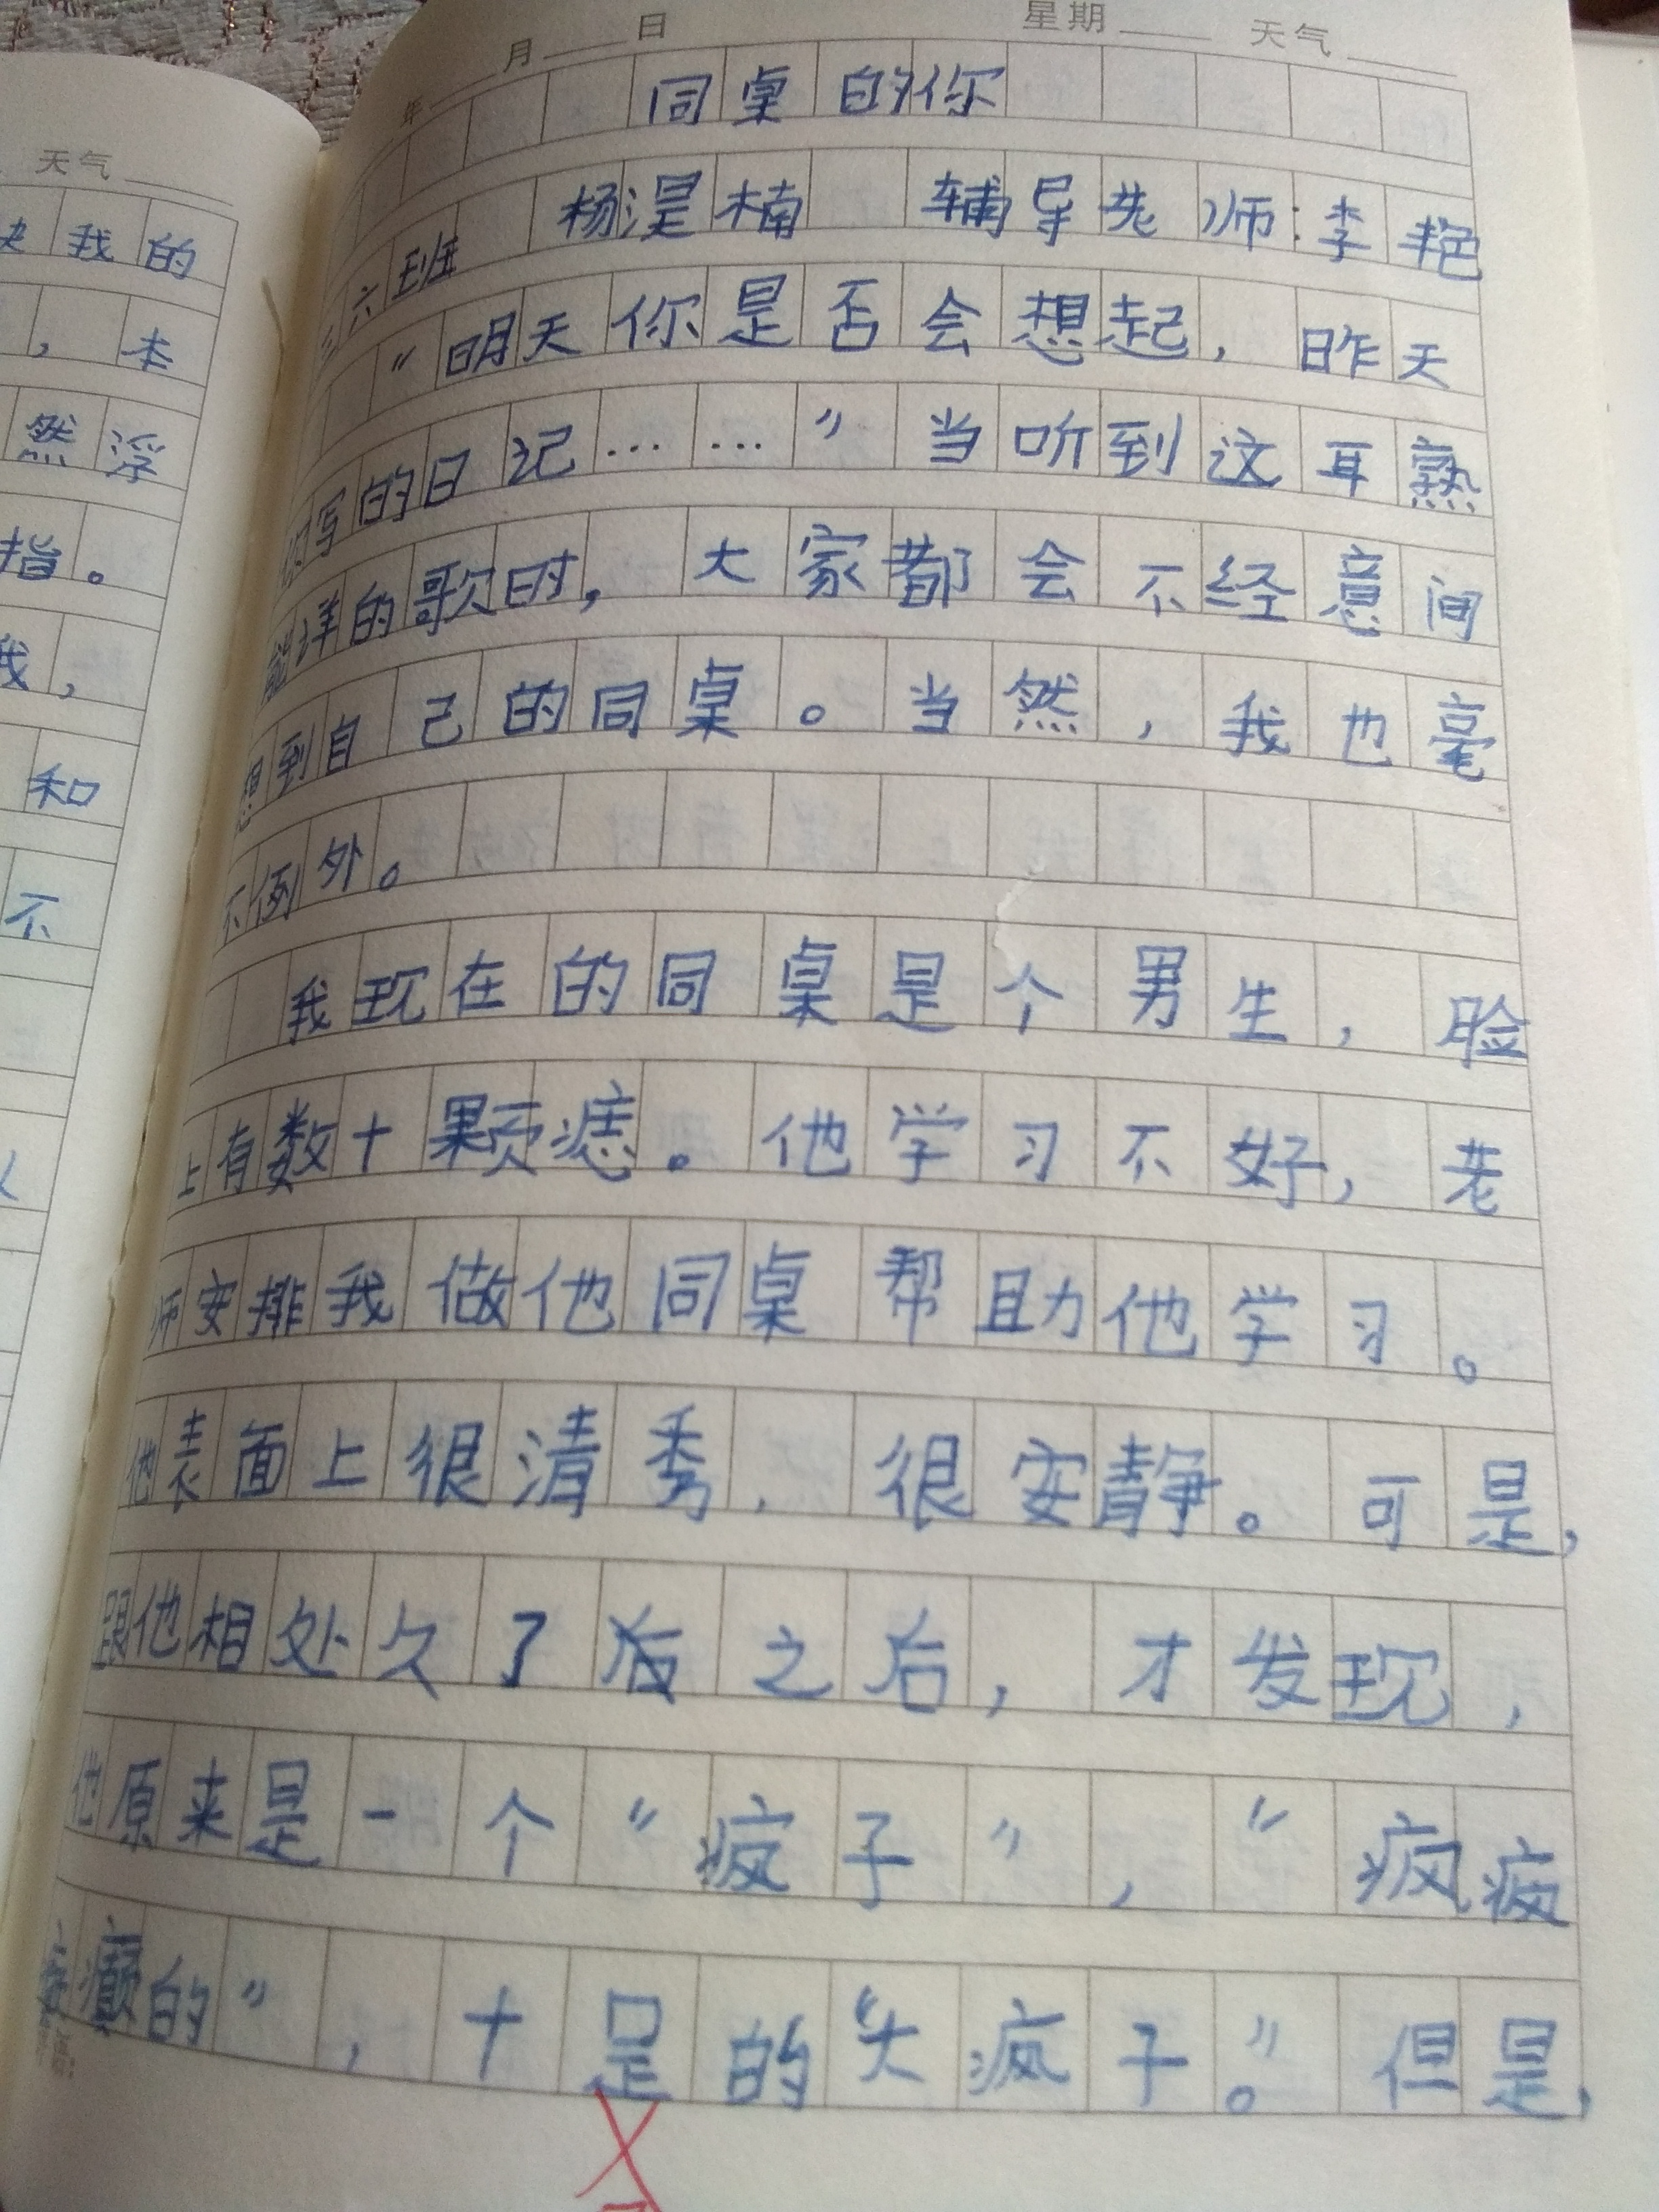 天气
我的
，本
然浮
指。
我，
和
不
年 月 日 星期 天气
同桌的你
三六班 杨湜楠 辅导老师：李艳
“明天你是否会想起，昨天
你写的日记……”当听到这耳熟
能详的歌时，大家都会不经意间
想到自己的同桌。当然，我也毫
不例外。
我现在的同桌是个男生，脸
上有数十颗痣。他学习不好，老
师安排我做他同桌帮助他学习。
他表面上很清秀，很安静。可是，
跟他相处久了之后，才发现，
他原来是一个“疯子”，“疯疯
癫的”，十足的“大疯子。”但是，